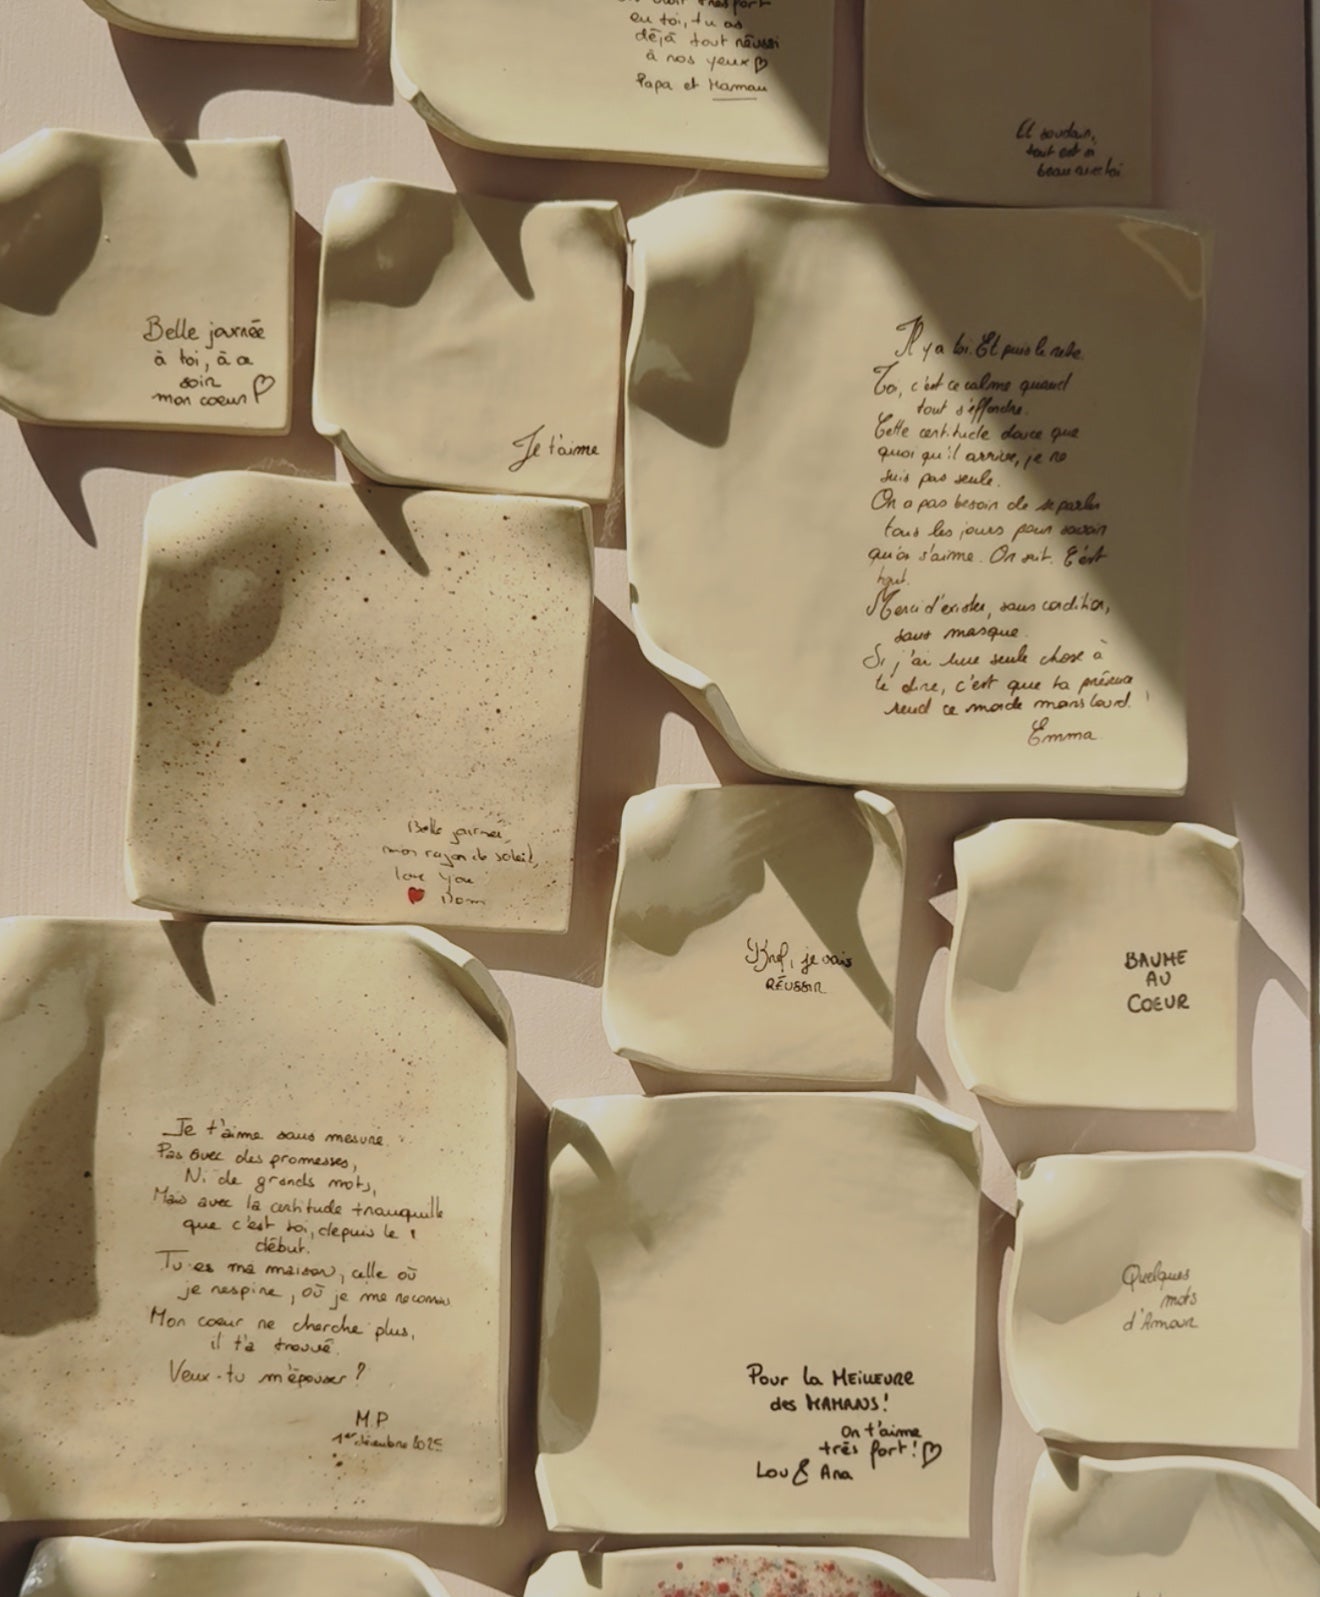 eu toi, tu as
déjà tout réussi
à nos yeux
Papa et Maman
Et soudain,
tout est si
beau avec toi
Belle journée
à toi, à ce
soir
mon coeur
Je t'aime
Il y a toi. Et puis le reste.
Toi, c'est ce calme quand
tout s'effondre.
Cette certitude douce que
quoi qu'il arrive, je ne
suis pas seule.
On a pas besoin de se parler
tous les jours pour savoir
qu'on s'aime. On sait. C'est
tout.
Merci d'exister, sans condition,
sans masque.
Si j'ai une seule chose à
te dire, c'est que ta présence
rend ce monde moins lourd.
Emma
Belle journée,
mon rayon de soleil,
love you
Dom
Bref, je vais
RÉUSSIR
BAUME
AU
COEUR
Je t'aime sans mesure.
Pas avec des promesses,
Ni de grands mots,
Mais avec la certitude tranquille
que c'est toi, depuis le
début.
Tu es ma maison, celle où
je respire, où je me reconnais
Mon coeur ne cherche plus,
il t'a trouvé.
Veux-tu m'épouser ?
M.P
1er décembre 2025
Pour la MEILLEURE
des MAMANS !
On t'aime
très fort !
Lou & Ana
Quelques
mots
d'Amour